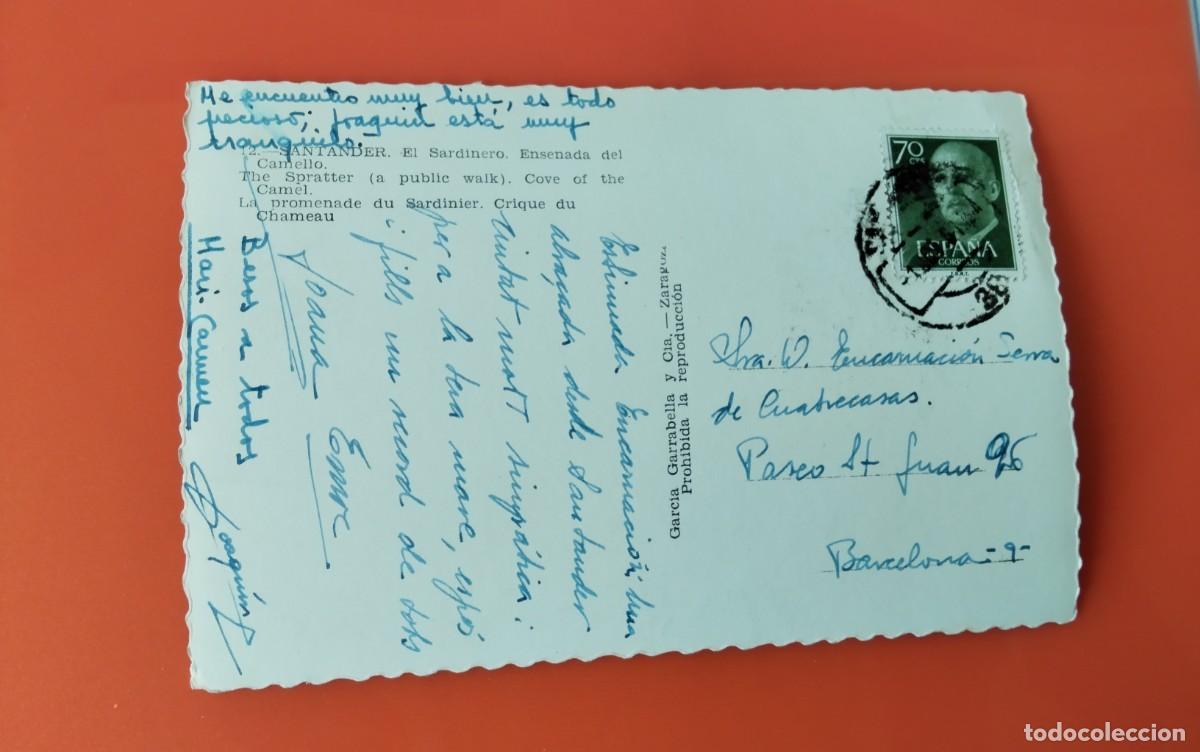 Me encuentro muy bien, es todo
pecioso; Joaquin está muy
tranquilo.
12.—SANTANDER. El Sardinero. Ensenada del
Camello.
The Spratter (a public walk). Cove of the
Camel.
La promenade du Sardinier. Crique du
Chameau
Estimada Encarnación: una
abraçada desde Santander
ciutat molt simpática i
per a la seva mare, espós
i fills un record de tots
Joana
Besos a todos
Mari-Carmen
Joaquín
Garcia Garrabella y Cia.—Zaragoza
Prohibida la reproducción
70 CTS
ESPAÑA
CORREOS
Sra. D. Encarnación Serra
de Cuatrecasas.
Paseo St Juan 96
Barcelona -9-
todocoleccion